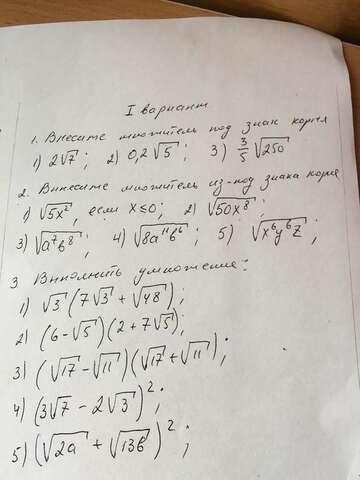 I вариант
1. Внесите множитель под знак корня
1) 2√7; 2) 0,2√5; 3) 3/5 √250
2. Вынесите множитель из-под знака корня
1) √5x², если x≤0; 2) √50x⁸;
3) √a⁷b⁸; 4) √8a¹¹b⁶; 5) √x⁶y⁶z;
3 Выполнить умножение:
1) √3(7√3+√48);
2) (6-√5)(2+7√5);
3) (√17-√11)(√17+√11);
4) (3√7-2√3)²;
5) (√2a+√13b)²;